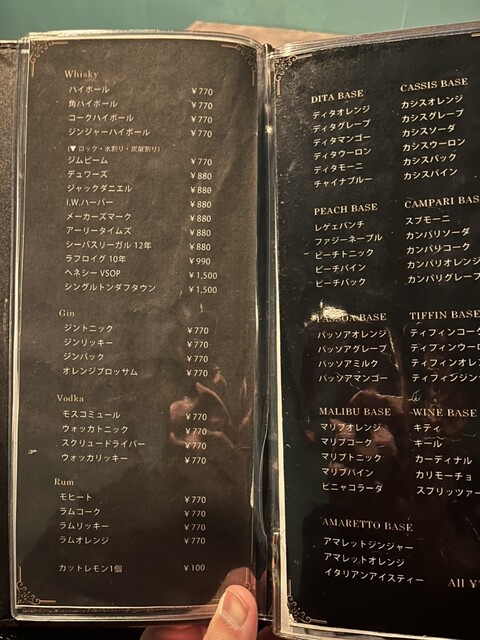 Whisky
ハイボール ¥770
角ハイボール ¥770
コークハイボール ¥770
ジンジャーハイボール ¥770
(▼ロック・水割り・炭酸割り)
ジムビーム ¥770
デュワーズ ¥880
ジャックダニエル ¥880
I.W.ハーパー ¥880
メーカーズマーク ¥880
アーリータイムズ ¥880
シーバスリーガル 12年 ¥880
ラフロイグ 10年 ¥990
ヘネシー VSOP ¥1,500
シングルトンダフタウン ¥1,500
Gin
ジントニック ¥770
ジンリッキー ¥770
ジンバック ¥770
オレンジブロッサム ¥770
Vodka
モスコミュール ¥770
ウォッカトニック ¥770
スクリュードライバー ¥770
ウォッカリッキー ¥770
Rum
モヒート ¥770
ラムコーク ¥770
ラムリッキー ¥770
ラムオレンジ ¥770
カットレモン1個 ¥100
DITA BASE
ディタオレンジ
ディタグレープ
ディタマンゴー
ディタウーロン
ディタモーニ
チャイナブルー
CASSIS BASE
カシスオレンジ
カシスグレープ
カシスソーダ
カシスウーロン
カシスバック
カシスパイン
PEACH BASE
レゲエパンチ
ファジーネーブル
ピーチトニック
ピーチパイン
ピーチバック
CAMPARI BASE
スプモーニ
カンパリソーダ
カンパリコーク
カンパリオレンジ
カンパリグレープ
PASSOA BASE
パッソアオレンジ
パッソアグレープ
パッソアミルク
パッソアマンゴー
TIFFIN BASE
ティフィンコーク
ティフィンウーロ
ティフィンオレン
ティフィンジン
MALIBU BASE
マリブオレンジ
マリブコーク
マリブトニック
マリブパイン
ピニャコラーダ
WINE BASE
キティ
キール
カーディナル
カリモーチョ
スプリッツァー
AMARETTO BASE
アマレットジンジャー
アマレットオレンジ
イタリアンアイスティー
All ¥